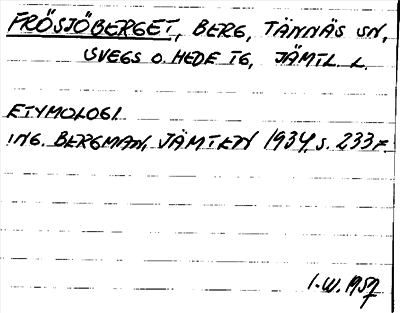 FRÖSJÖBERGET, BERG, TÄNNÄS SN,
SVEGS O. HEDE TG, JÄMTL. L.
ETYMOLOGI
ING. BERGMAN, JÄMTEN 1934, s. 233 F.
I.W. 1957